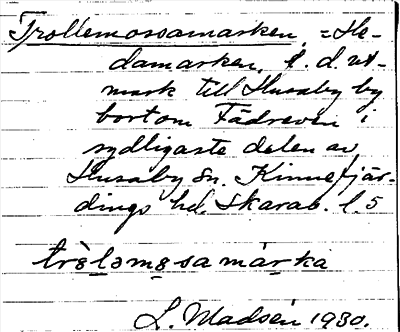 Trollemossamarken, = He-
damarken, f. d. ut-
mark till Husaby by
bortom Fädreven i
sydligaste delen av
Husaby sn. Kinnefjär-
dings hd. Skarab. l. 5
L. Madsén 1930.